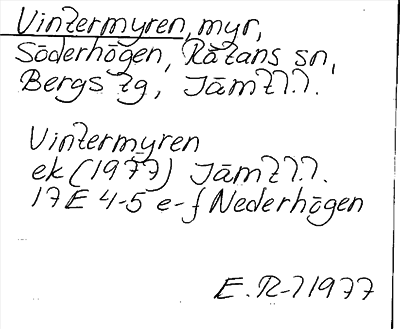 Vintermyren, myr,
Söderhögen, Rätans sn,
Bergs tg, Jämtl.
Vintermyren
ek (1977) Jämtl.
17E 4-5 e-f Nederhögen
E. R-l 1977